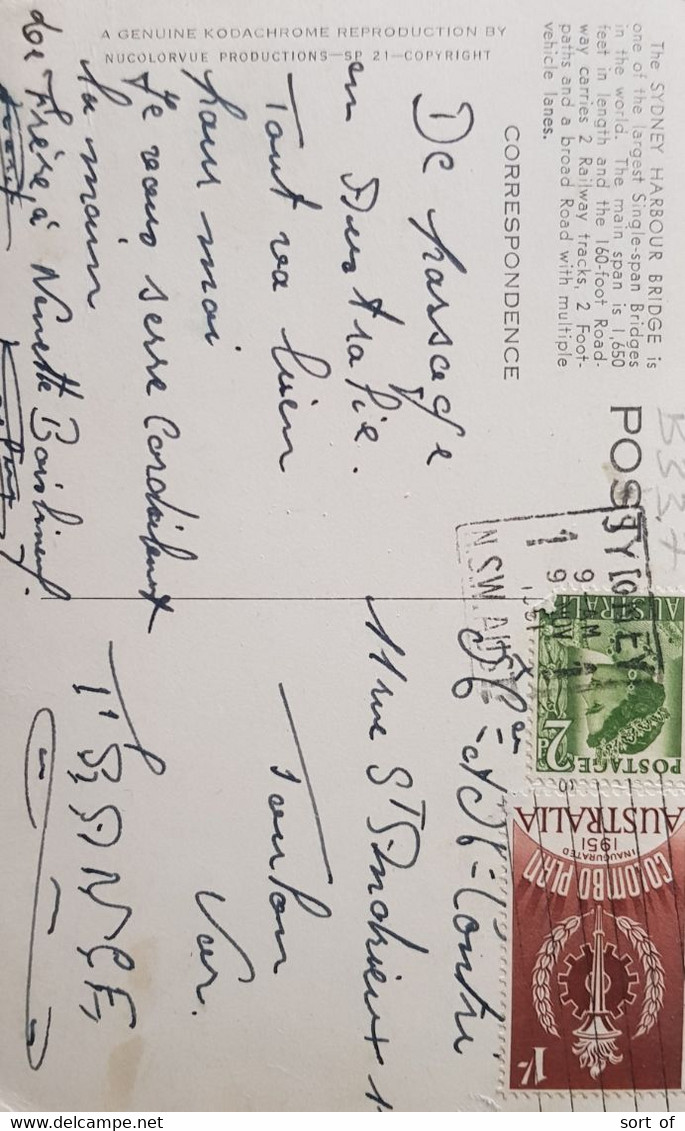 A GENUINE KODACHROME REPRODUCTION BY
NUCOLORVUE PRODUCTIONS—SP 21—COPYRIGHT
The SYDNEY HARBOUR BRIDGE is
one of the largest Single-span Bridges
in the world. The main span is 1,650
feet in length and the 160-foot Road-
way carries 2 Railway tracks, 2 Foot-
paths and a broad Road with multiple
vehicle lanes.
CORRESPONDENCE
POST
B337
De passage
en Australie.
Tout va bien
pour moi
Je vous serre Cordialement
la main
Frère à Ninette
SYDNEY
9 AM
9 NOV
1951
N.S.W. AUST
AUSTRALIA
2D
POSTAGE
AUSTRALIA
1951
INAUGURATED
COLOMBO PLAN
1/-
rue St
Toulon
Var.
FRANCE
sort of